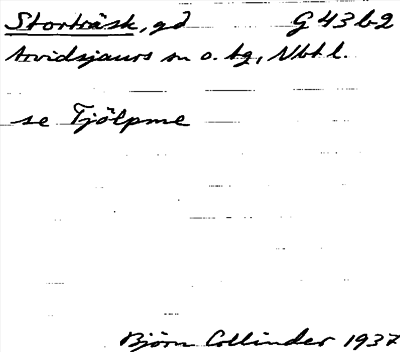 Storträsk, gd G 43 b2
Arvidsjaurs sn o. tg, Nbt l.
se Tjölpme
Björn Collinder 1937